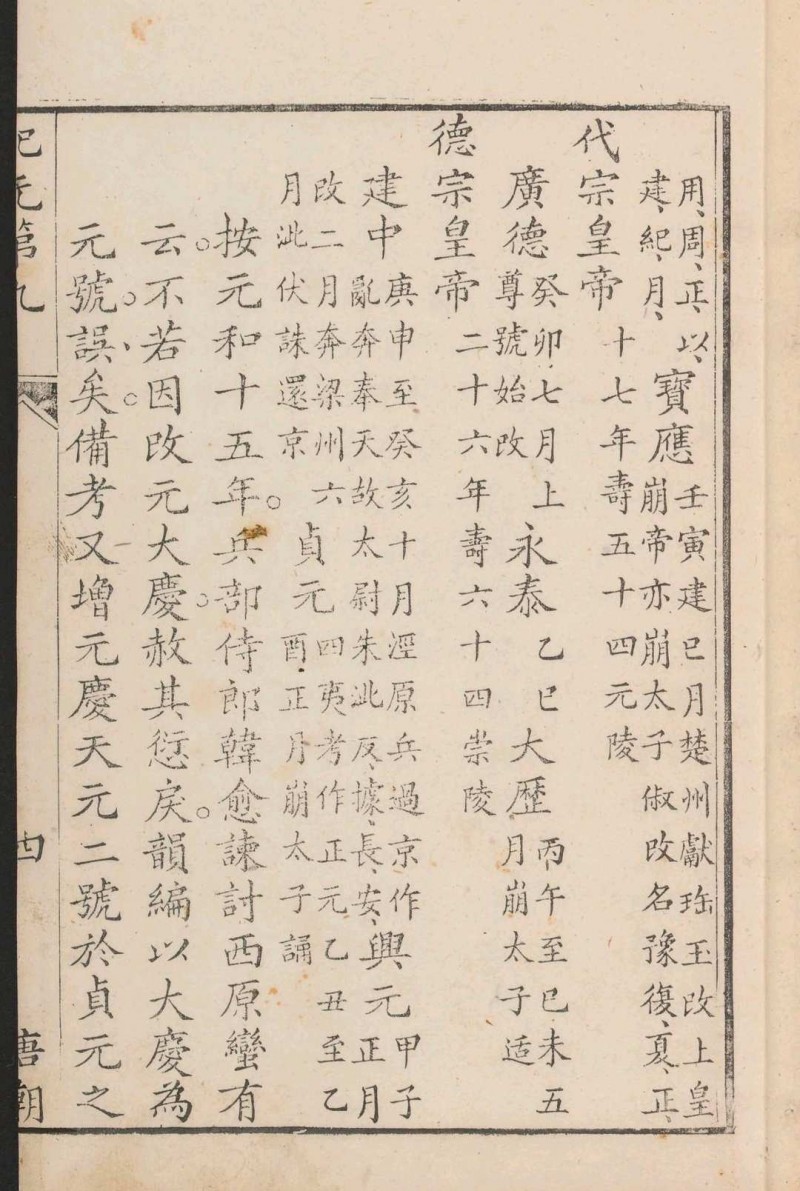 用周正以建紀月寶應壬寅建巳月楚州獻珤玉改上皇崩帝亦崩太子俶改名豫復夏正
代宗皇帝十七年壽五十四元陵
廣德癸卯七月上尊號始改永泰乙巳大歷丙午至己未五月崩太子适
德宗皇帝二十六年壽六十四崇陵
建中庚申至癸亥十月涇原兵過京作亂奔奉天故太尉朱泚反據長安興元甲子正月
改二月奔梁州六月泚伏誅還京貞元四夷考作正元乙丑至乙酉正月崩太子誦
按元和十五年。兵部侍郎韓愈諫討西原蠻有
云。不若因改元大慶。赦其愆戾。韻編以大慶為
元號。誤矣。備考又增元慶天元二號於貞元之
紀元第九 四 唐朝